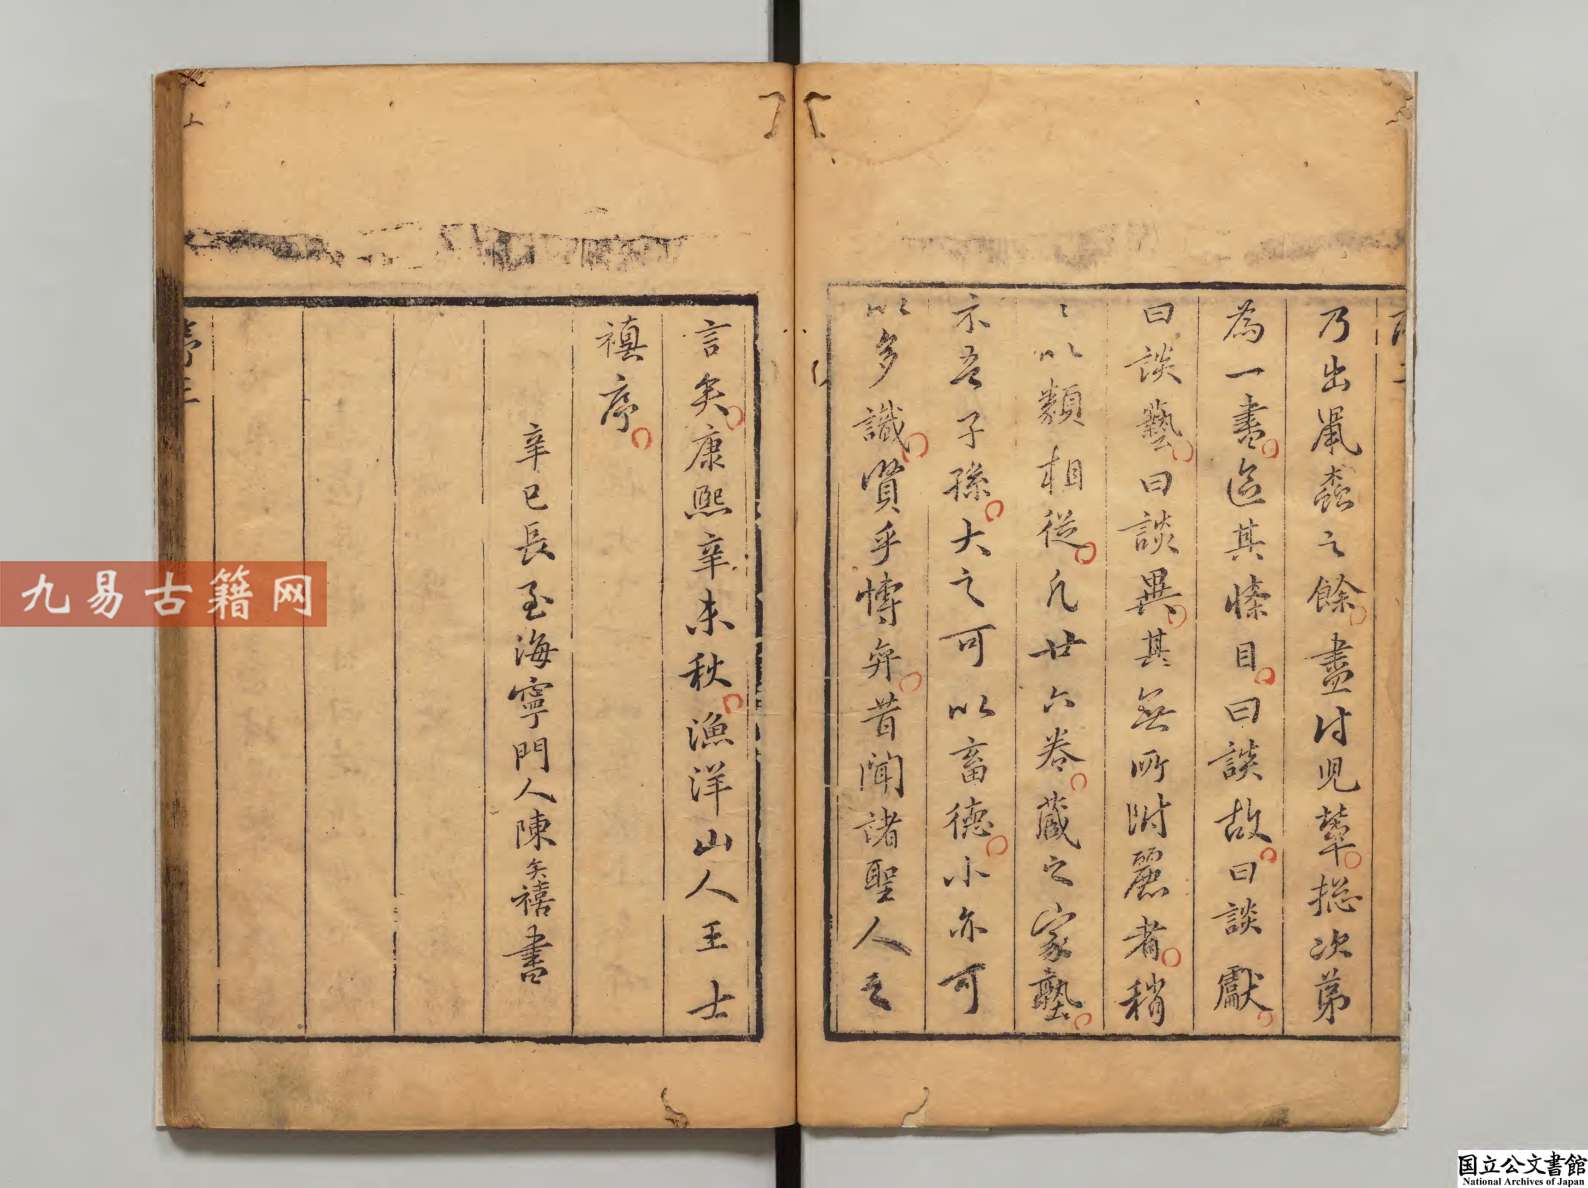 乃出鼠蠹之餘盡付兒輩摠次第
為一書區其條目曰談故曰談獻
曰談藝曰談異其無所附麗者稍
〻以類相從凡廿六卷藏之家塾
示吾子孫大之可以畜德小亦可
以多識賢乎博弈昔聞諸聖人之
言矣康熙辛未秋漁洋山人王士
禛序
辛巳長至海寧門人陳奕禧書
序三
九易古籍网
国立公文書館
National Archives of Japan